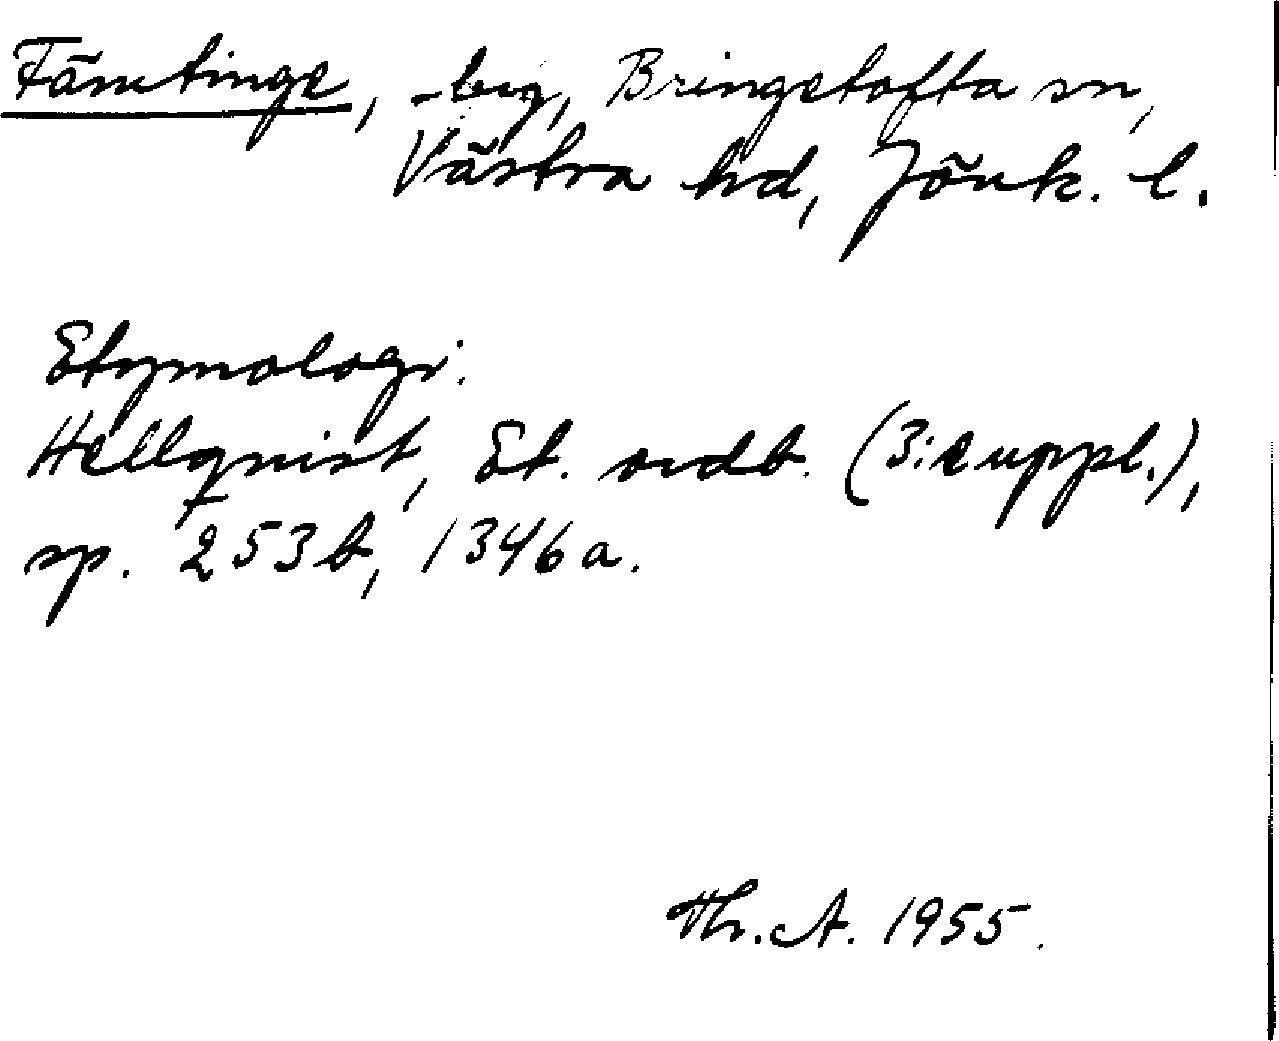 Fämtinge, -by, Bringetofta sn,
Västra hd, Jönk. l.
Etymologi:
Hellquist, Et. ordb. (3:e uppl.),
sp. 253b, 1346a.
Th. A. 1955.